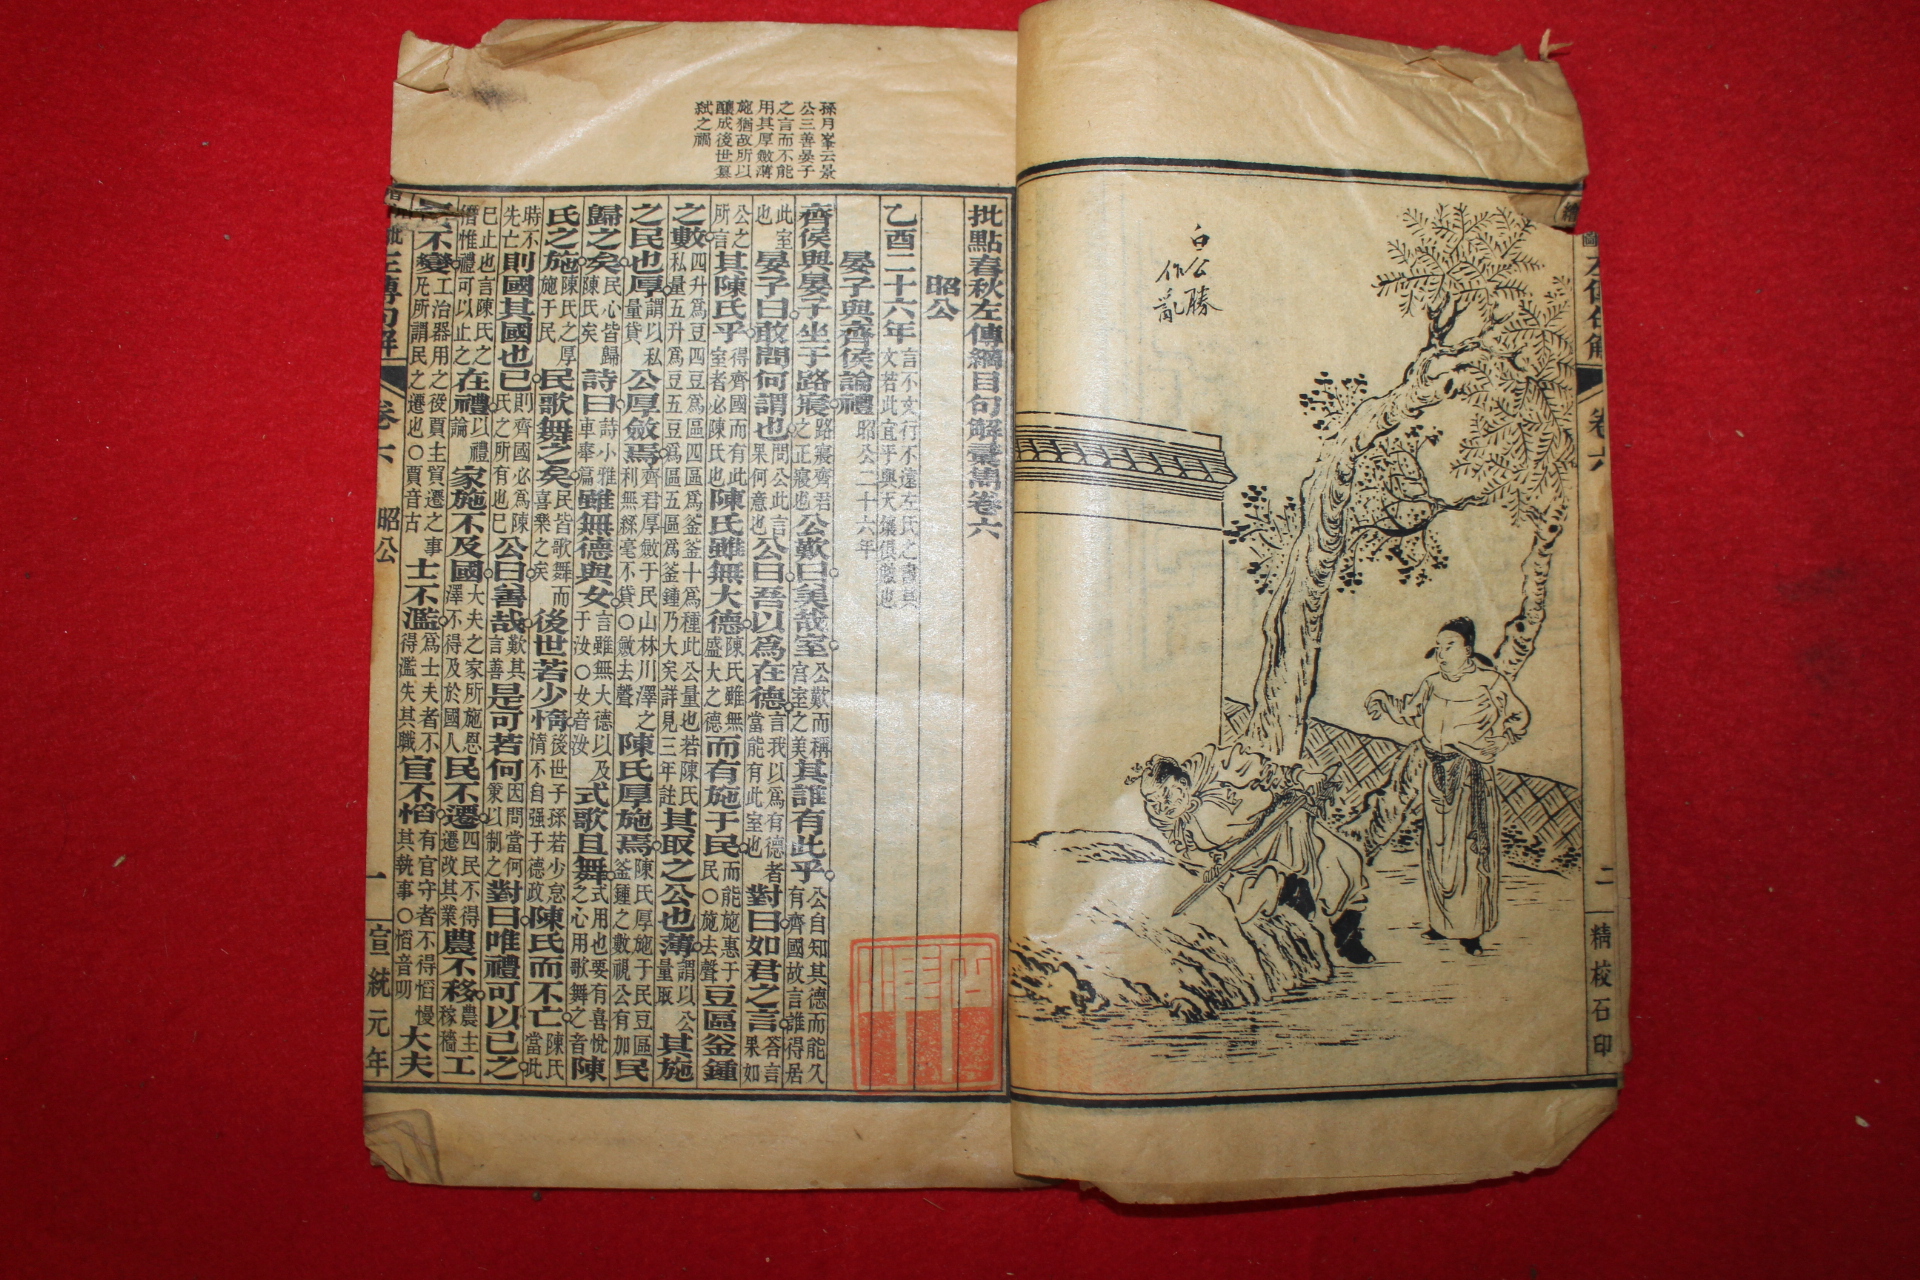 白公勝
作亂
卷六
二
精校石印
批點春秋左傳綱目句解彙雋卷六
昭公
乙酉二十六年
言不文行不遠左氏之書其
文若此宜乎與天壤俱敝也
晏子與齊侯論禮
昭公二十六年
孫月峯云景
公三善晏子
之言而不能
用其厚斂薄
施猶故所以
釀成後世簒
弑之禍
齊侯與晏子坐于路寢
路寢齊君
之正寢也
公歎曰美哉室
公歎而稱
宮室之美
其誰有此乎
公自知其德而能久
有齊國故言誰得居
此室
也
晏子曰敢問何謂也
問公此言
果何意也
公曰吾以爲在德
言我以爲有德者
當能有此室也
對曰如君之言
答言
果如
公之
所言
其陳氏乎
得齊國而有此
室者必陳氏也
陳氏雖無大德
陳氏雖無
盛大之德
而有施于民
而能施惠于
民〇施去聲
豆區釜鍾
之數
四升爲豆四豆爲區四區爲釜釜十爲種此公量也若陳氏
私量五升爲豆五豆爲區五區爲釜鍾乃大矣詳見三年註
其取之公也薄
謂以公
量取
其施
之民也厚
謂以私
量貸
公厚斂焉
齊君厚斂于民山林川澤之
利無綵毫不貸〇斂去聲
陳氏厚施焉
陳氏厚施于民豆區
釜鍾之數視公有加
民
歸之矣
民心皆歸
陳氏矣
詩曰
詩小雅
車舝篇
雖無德與女
言雖無大德以及
于汝〇女音汝
式歌且舞
式用也要有喜悅
之心用歌舞之音
陳
氏之施
陳氏之厚
施于民
民歌舞之矣
民皆歌舞而
喜樂之矣
後世若少惰
後世子孫若少怠
惰不自强于德政
陳氏而不亡
陳氏
當此
時不
先亡
則國其國也已
則齊國必爲陳
氏之所有也已
公曰善哉
歎其
言善
是可若何
因問當何
策以制之
對曰唯禮可以已之
已止也言陳氏之
僭惟禮可以止之
在禮
以禮
論
家施不及國
大夫之家所施恩
澤不得及於國人
民不遷
四民不得
遷改其業
農不移
農主
稼穡
工
賈不變
工治器用之役賈主貿遷之事
凡所謂民之遷也〇賈音古
士不濫
爲士夫者不
得濫失其職
官不慆
有官守者不得慆慢
其執事〇慆音叨
大夫
卷六
昭公
一
宣統元年